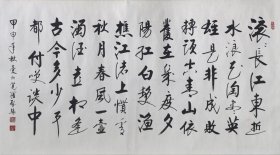 滚〻長江東逝
水浪花淘盡英
雄是非成敗
轉頭空青山依
舊在幾度夕
陽红白髮渔
樵江渚上慣看
秋月春風一壺
濁酒喜相逢
古今多少事
都付笑谈中
甲申年秋